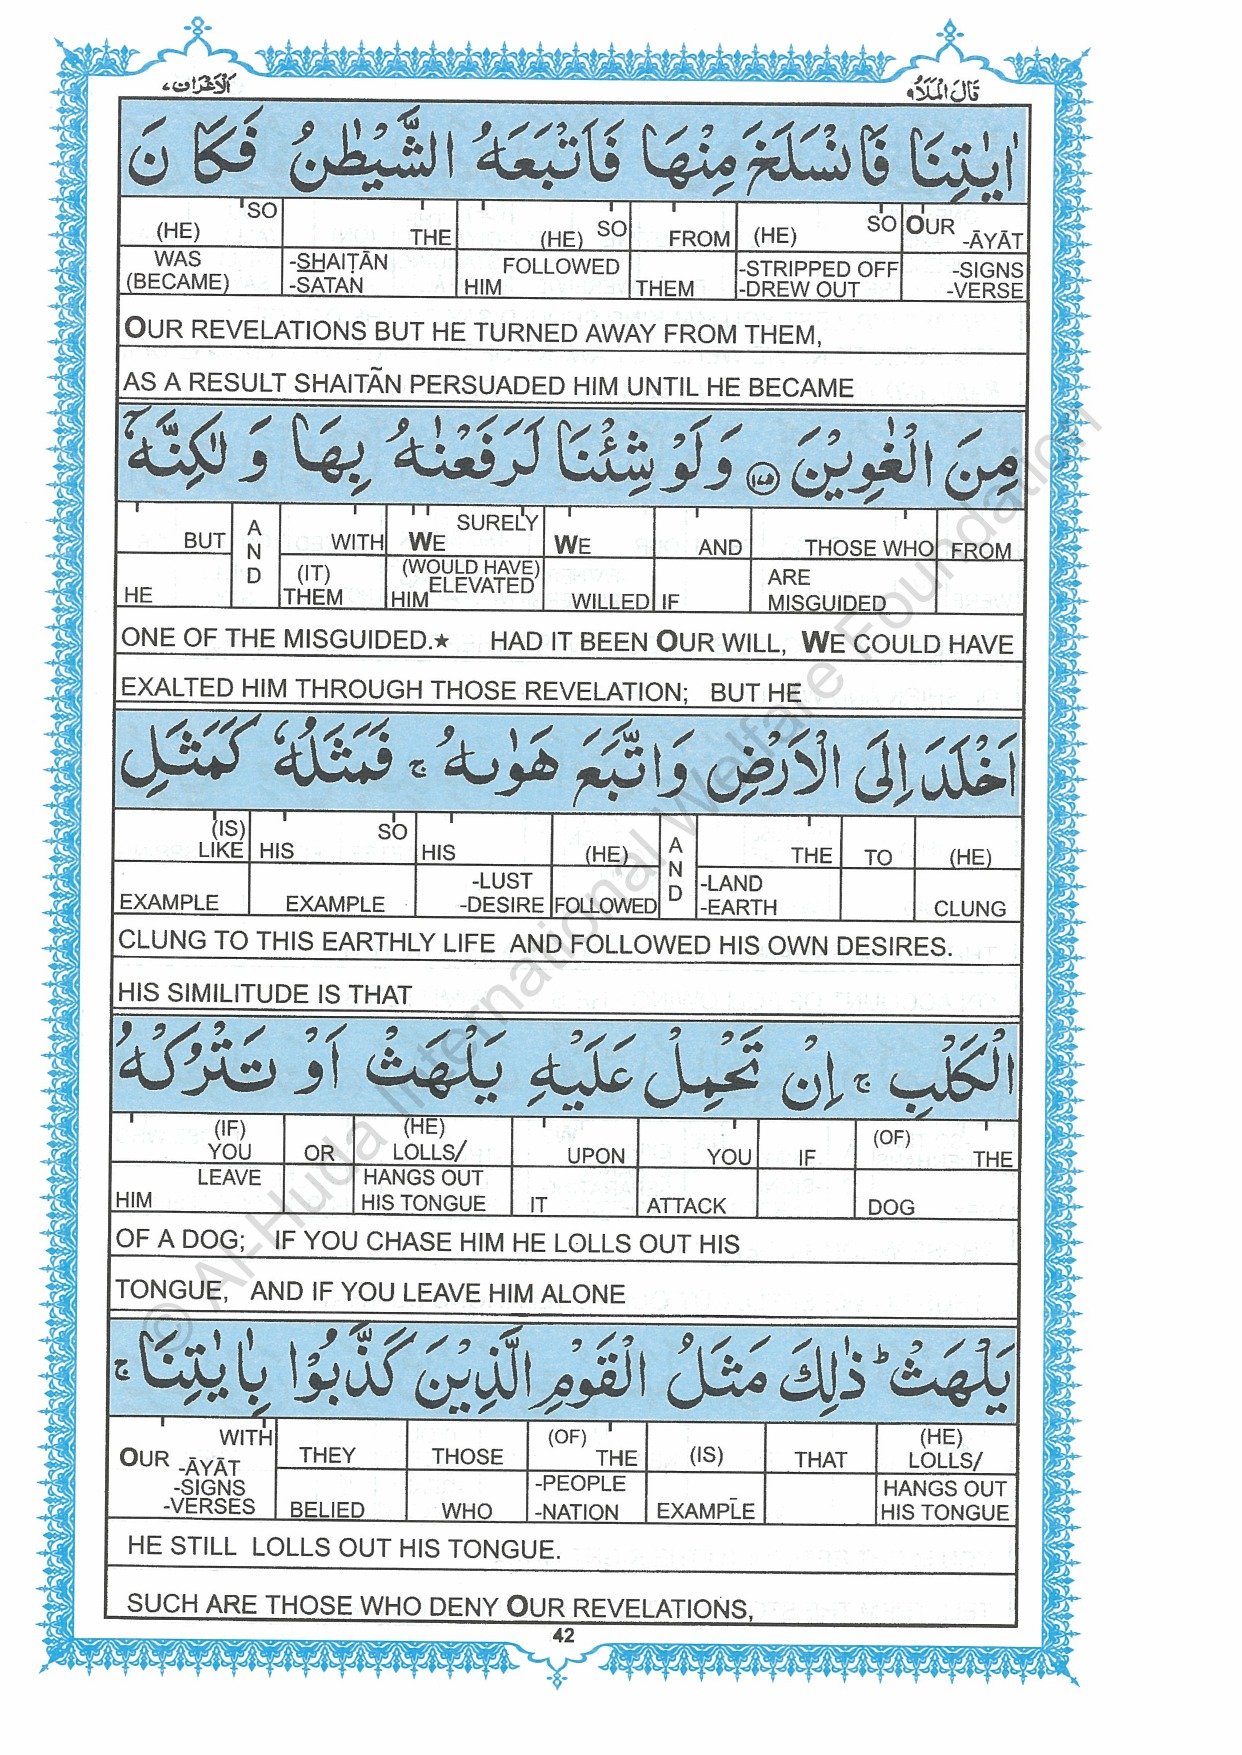 الاعراف ٧ قال الملا ٩
اٰيٰتِنَا فَانْسَلَخَ مِنْهَا فَاَتْبَعَهُ الشَّيْطٰنُ فَكَانَ
(HE) SO THE (HE) SO FROM (HE) SO OUR -ĀYĀT
WAS (BECAME) -SHAIṬĀN -SATAN FOLLOWED HIM THEM -STRIPPED OFF -DREW OUT -SIGNS -VERSE
OUR REVELATIONS BUT HE TURNED AWAY FROM THEM,
AS A RESULT SHAITÃN PERSUADED HIM UNTIL HE BECAME
مِنَ الْغٰوِيْنَ ۝١٧٥ وَلَوْ شِئْنَا لَرَفَعْنٰهُ بِهَا وَلٰكِنَّهٗۤ
BUT AND WITH SURELY WE WE AND THOSE WHO FROM
HE (IT) THEM (WOULD HAVE) ELEVATED HIM WILLED IF ARE MISGUIDED
ONE OF THE MISGUIDED.★ HAD IT BEEN OUR WILL, WE COULD HAVE
EXALTED HIM THROUGH THOSE REVELATION; BUT HE
اَخْلَدَ اِلَى الْاَرْضِ وَاتَّبَعَ هَوٰىهُ ۚ فَمَثَلُهٗ كَمَثَلِ
(IS) LIKE HIS SO HIS (HE) AND THE TO (HE)
EXAMPLE EXAMPLE -LUST -DESIRE FOLLOWED -LAND -EARTH CLUNG
CLUNG TO THIS EARTHLY LIFE AND FOLLOWED HIS OWN DESIRES.
HIS SIMILITUDE IS THAT
الْكَلْبِ ۚ اِنْ تَحْمِلْ عَلَيْهِ يَلْهَثْ اَوْ تَتْرُكْهُ
(IF) YOU OR (HE) LOLLS/ UPON YOU IF (OF) THE
LEAVE HIM HANGS OUT HIS TONGUE IT ATTACK DOG
OF A DOG; IF YOU CHASE HIM HE LOLLS OUT HIS
TONGUE, AND IF YOU LEAVE HIM ALONE
يَلْهَثْ ؕ ذٰلِكَ مَثَلُ الْقَوْمِ الَّذِيْنَ كَذَّبُوْا بِاٰيٰتِنَا ۚ
OUR WITH THEY THOSE (OF) THE (IS) THAT (HE) LOLLS/
-ĀYĀT -SIGNS -VERSES BELIED WHO -PEOPLE -NATION EXAMPLE HANGS OUT HIS TONGUE
HE STILL LOLLS OUT HIS TONGUE.
SUCH ARE THOSE WHO DENY OUR REVELATIONS,
42
© Al-Huda International Welfare Foundation